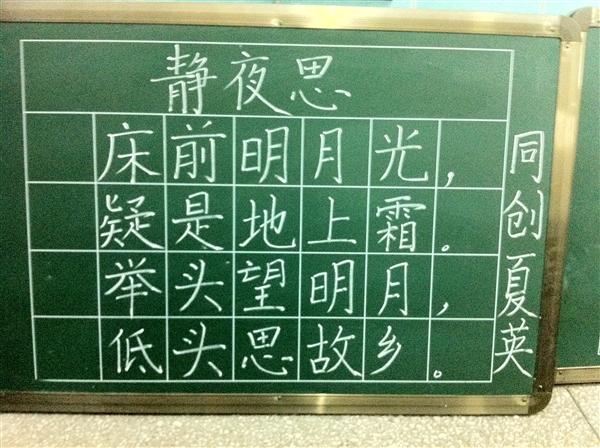 静夜思
床前明月光，
疑是地上霜。
举头望明月，
低头思故乡。
同创夏英